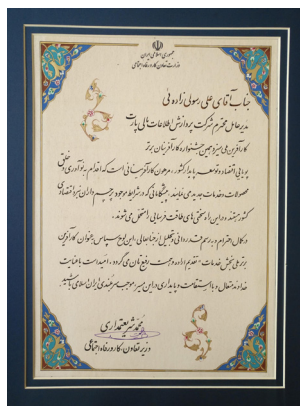 جمهوری اسلامی ایران
وزارت تعاون، کار و رفاه اجتماعی
جناب آقای علی رسولی زاده فی
مدیرعامل محترم شرکت پردازش اطلاعات مالی پارت
کارآفرین ملی سیزدهمین جشنواره کارآفرینان برتر
پویایی اقتصاد و توسعه پایدار کشور، مرهون کارآفرینانی است که اقدام به نوآوری و خلق
محصولات و خدمات جدید می نمایند. پیشگامانی که در شرایط موجود پرچم داران نبرد اقتصادی
کشور هستند و در این راه سختی های طاقت فرسایی را متحمل می شوند.
در کمال احترام و به رسم قدردانی و تجلیل از جنابعالی، این لوح سپاس به عنوان کارآفرین
برتر ملی بخش خدمات تقدیم اراده و همت رفیع تان می گردد. امید است با عنایت
خداوند متعال و با استقامت و پایداری در این مسیر موجب سربلندی ایران اسلامی باشید.
محمد شریعتمداری
وزیر تعاون، کار و رفاه اجتماعی